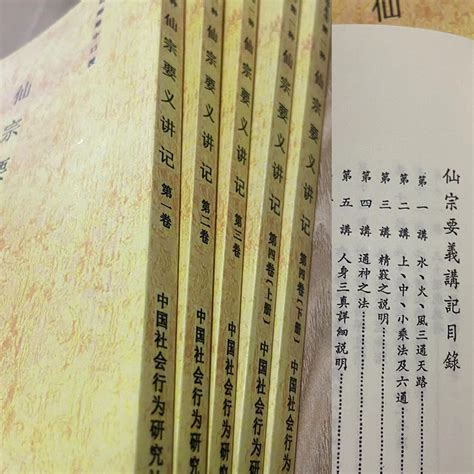 仙宗要
仙宗要义讲记 第一卷 中国社会行为研究
仙宗要义讲记 第二卷 中国社会行为研究
仙宗要义讲记 第三卷 中国社会行为研
仙宗要义讲记 第四卷(上册) 中国社会行为
仙宗要义讲记 第四卷(下册) 中国社会行为
仙
仙宗要義講記目錄
第一講 水、火、風三通天路
第二講 上、中、小乘法及六通
第三講 精竅之說明
第四講 通神之法
第五講 人身三真詳細說明